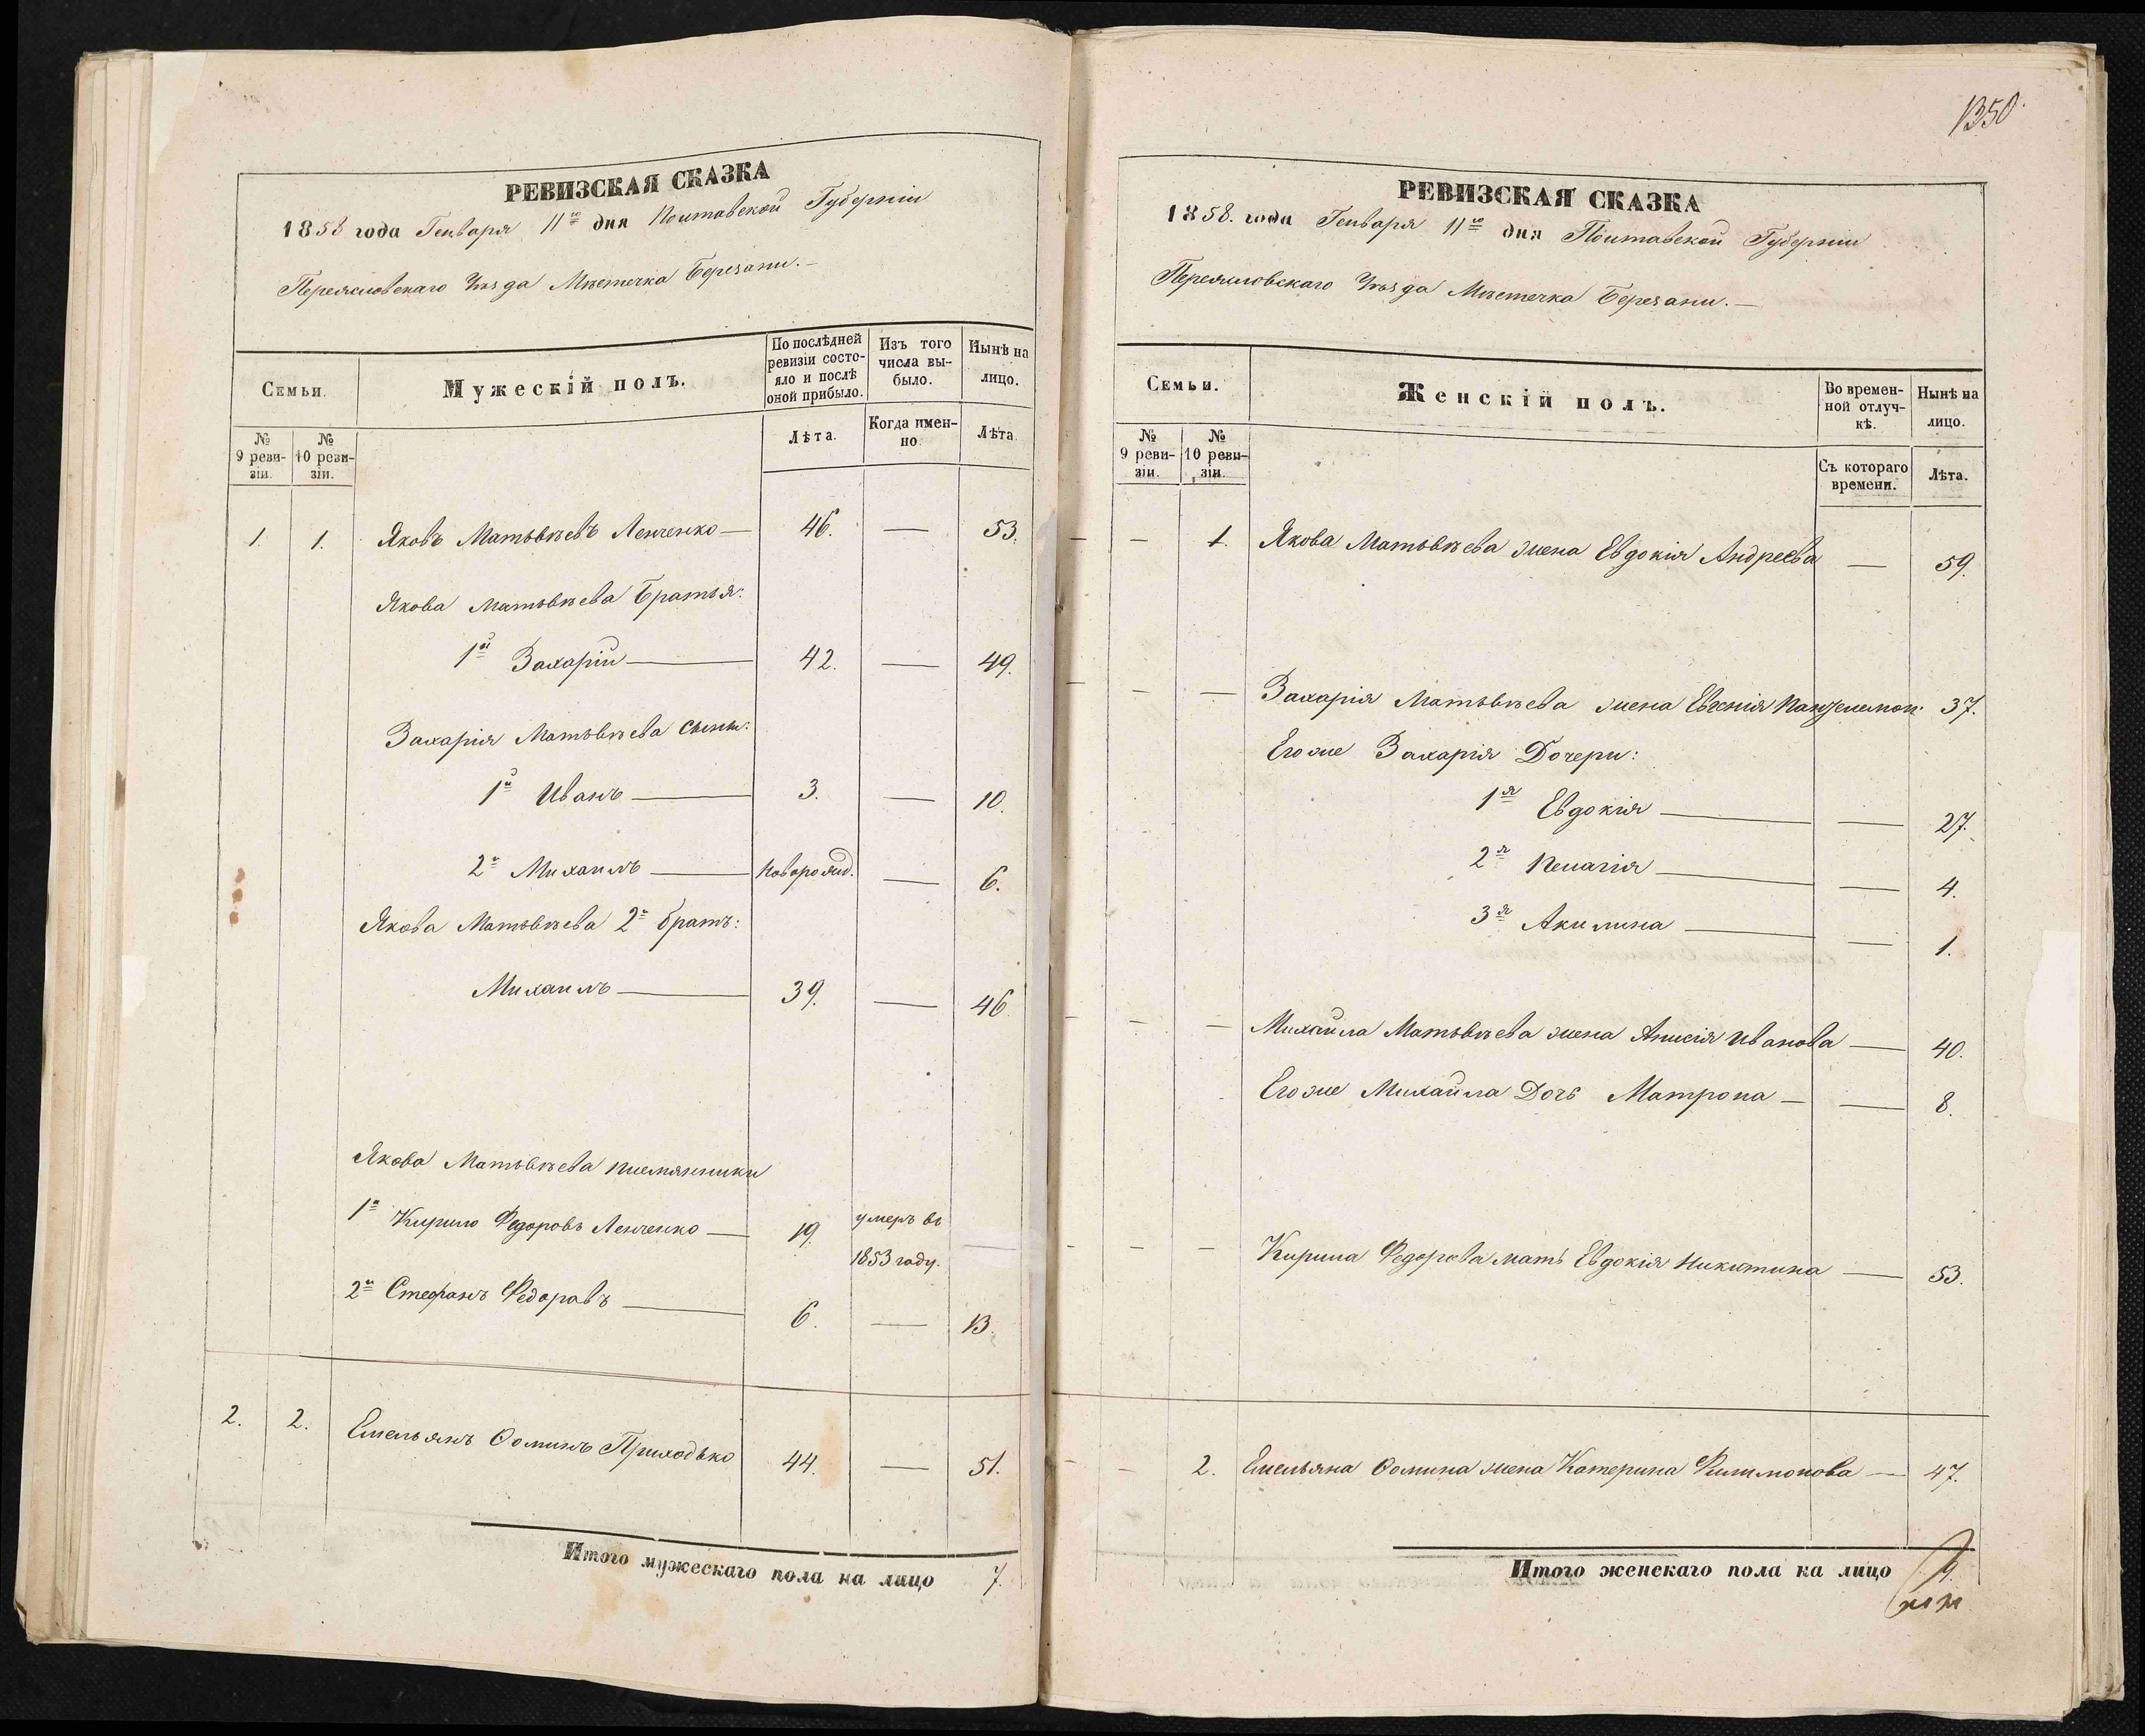 РЕВИЗСКАЯ СКАЗКА
1858 года Генваря 11го дня Полтавской Губерніи
Переясловскаго Уѣзда Мѣстечка Березани.—
Семьи.
Мужескій полъ.
По послѣдней ревизіи состояло и послѣ оной прибыло.
Изъ того числа выбыло.
Нынѣ на лицо.
№ 9 ревизіи.
№ 10 ревизіи.
Лѣта.
Когда именно.
Лѣта.
1. 1. Яковъ Матвѣевъ Ленченко — 46. — 53.
Якова Матвѣева Братья:
1й Захарій — 42. — 49.
Захарія Матвѣева сыны:
1й Иванъ — 3. — 10.
2й Михаилъ — новорожд. — 6.
Якова Матвѣева 2й братъ:
Михаилъ — 39. — 46.
Якова Матвѣева племянники
1й Кирило Федоровъ Ленченко — 19. умеръ въ 1853 году.
2й Стефанъ Федоровъ — 6. — 13.
2. 2. Емельянъ Ѳоминъ Приходько 44. — 51.
Итого мужескаго пола на лицо 7.
1350.
РЕВИЗСКАЯ СКАЗКА
1858. года Генваря 11го дня Полтавской Губерніи
Переясловскаго Уѣзда Мѣстечка Березани.—
Семьи.
Женскій полъ.
Во временной отлучкѣ.
Нынѣ на лицо.
№ 9 ревизіи.
№ 10 ревизіи.
Съ котораго времени.
Лѣта.
— 1. Якова Матвѣева жена Евдокія Андреева — 59.
— — Захарія Матвѣева жена Евгенія Пантелемон: 37.
Его же Захарія Дочери:
1я Евдокія — — 27.
2я Пелагія — — 4.
3я Акилина — — 1.
— — Михайла Матвѣева жена Анисія Иванова — 40.
Его же Михайла Дочь Матрона — — 8.
— — Кирила Федорова мать Евдокія Никитина — 53.
— 2. Емельяна Ѳомина жена Катерина Филимонова — 47.
Итого женскаго пола на лицо